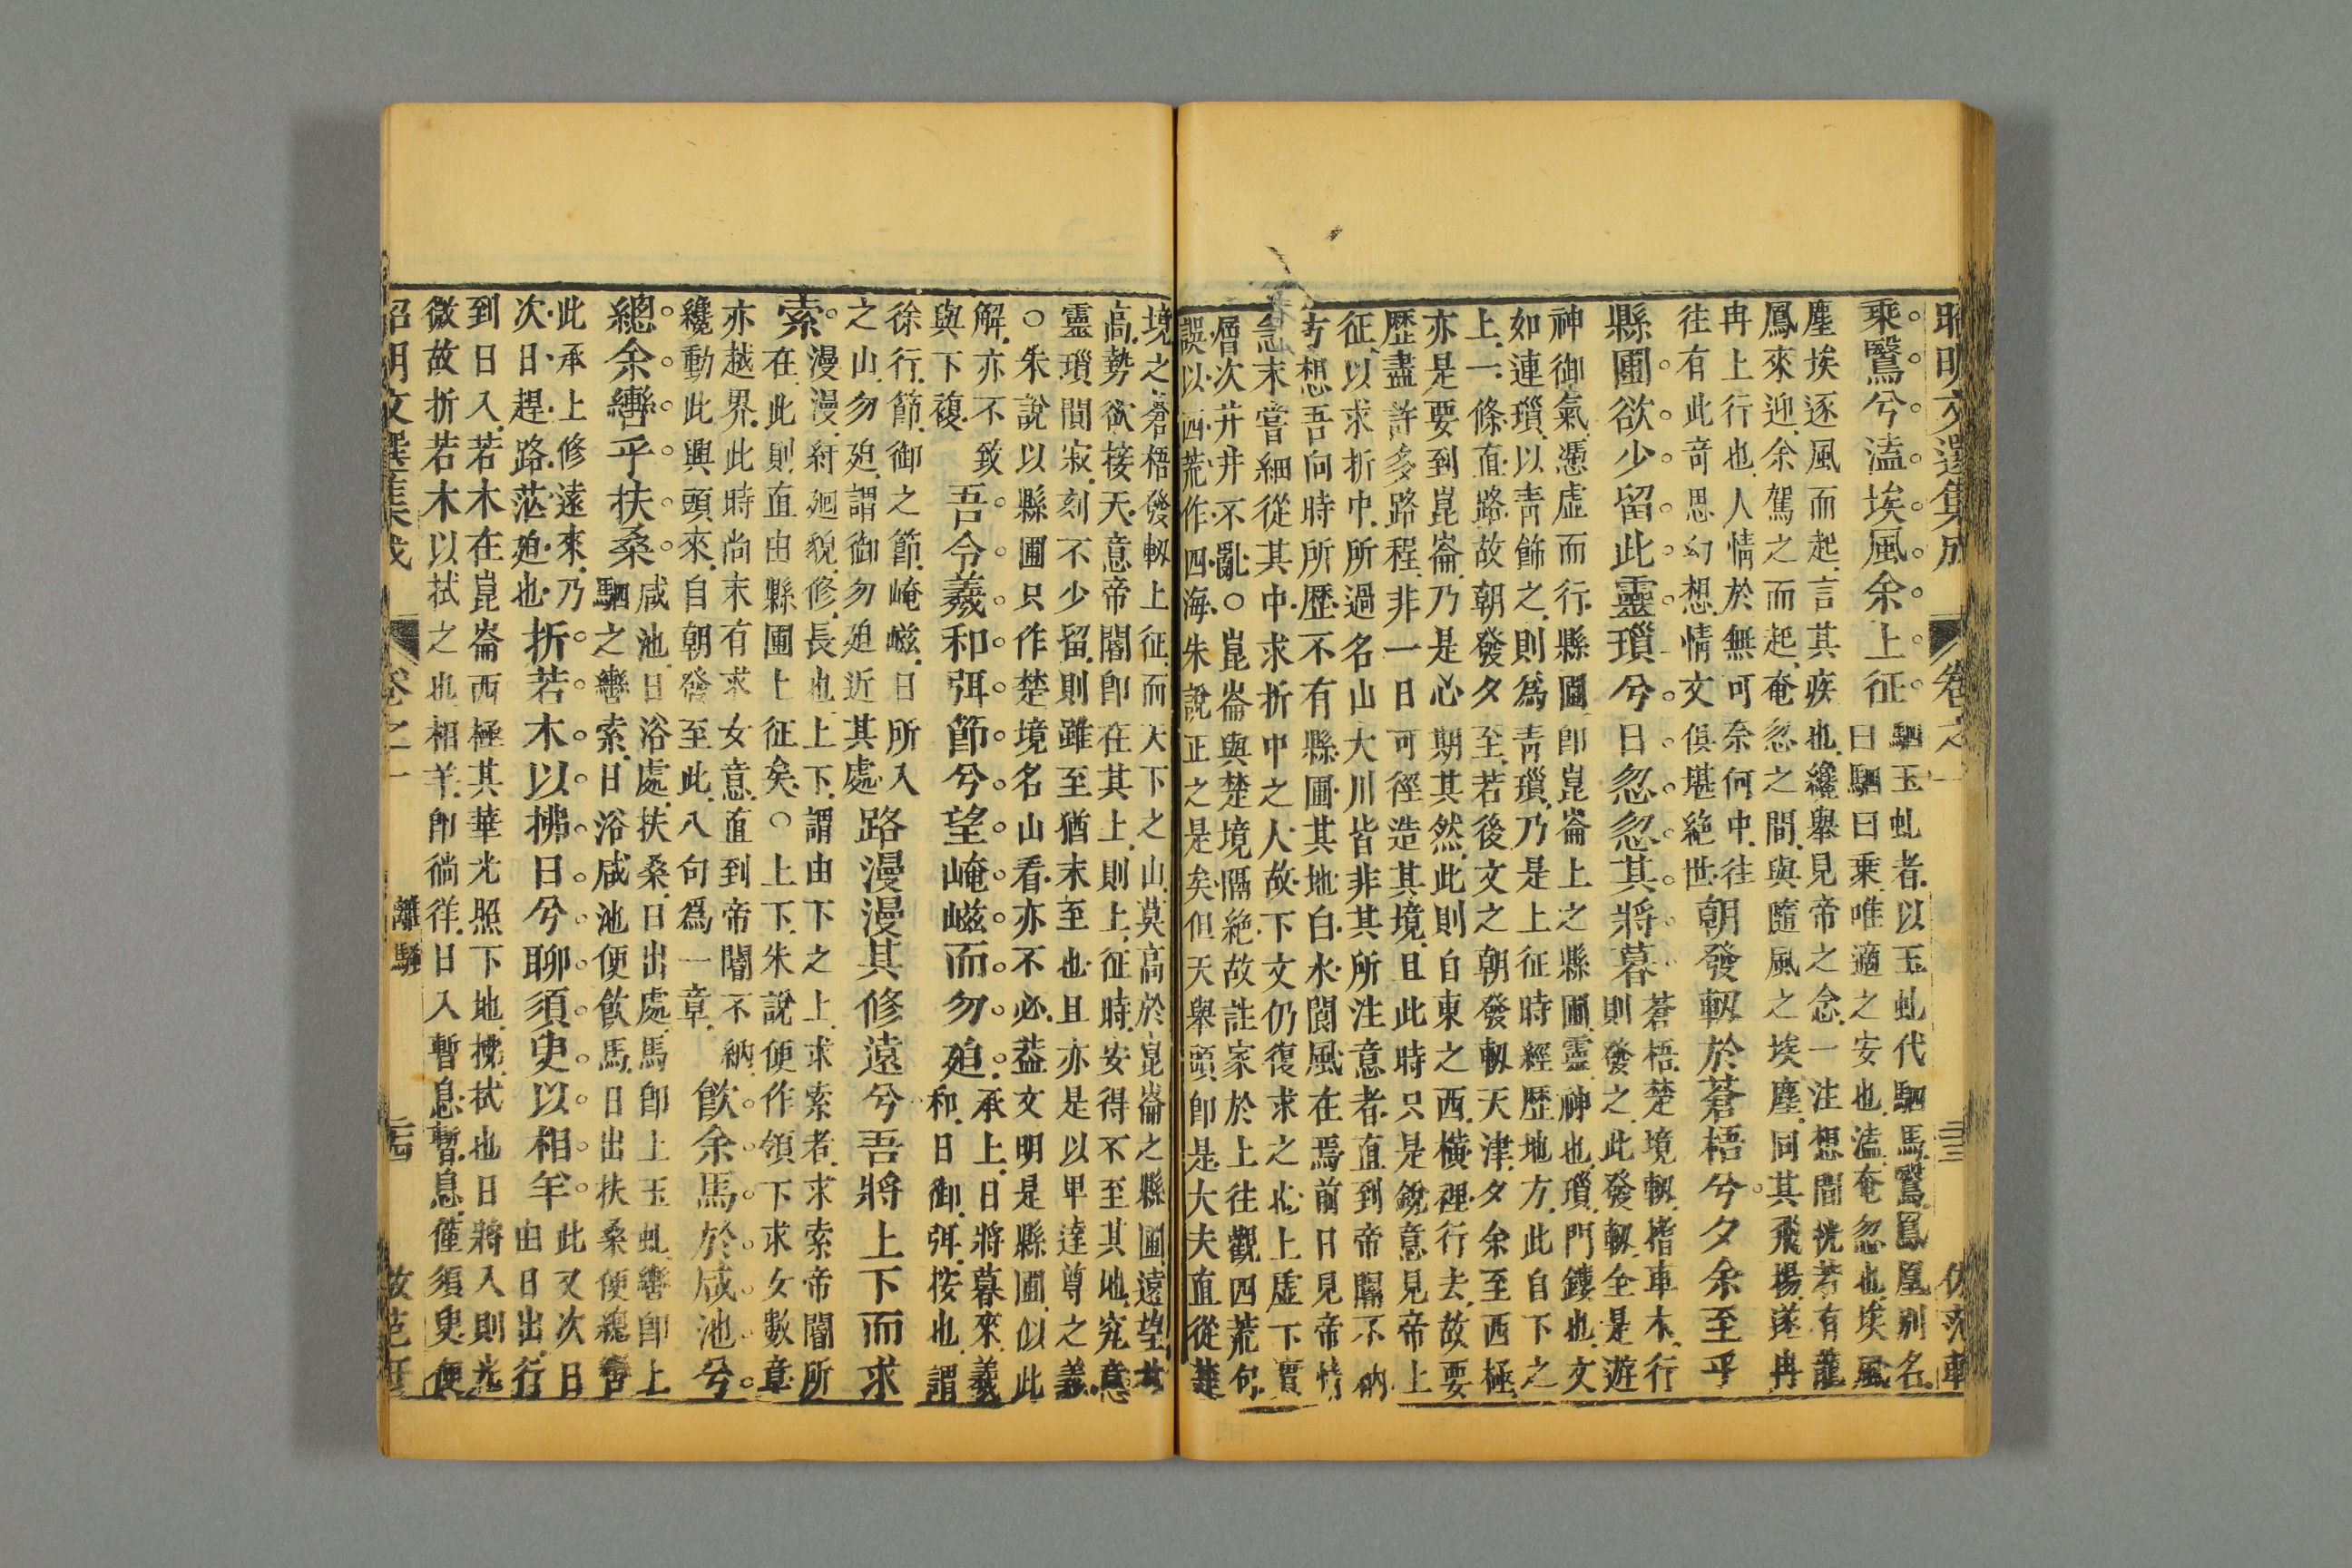 昭明文選集成 卷之一 三三
乘鷖兮溘埃風余上征駟玉虬者以玉虬代駟馬鷖鳳凰別名
曰駟曰乘唯適之安也溘奄忽也埃風
塵埃逐風而起言其疾也纔舉見帝之念一注想間恍若有龍
鳳來迎余駕之而起奄忽之間與隨風之埃塵同其飛揚遂冉
冉上行也人情於無可奈何中往
往有此奇思幻想情文俱堪絶世朝發軔於蒼梧兮夕余至乎
縣圃欲少留此靈瑣兮日忽忽其將暮蒼梧楚境軔揩車木行
則發之此發軔全是遊
神御氣憑虛而行縣圃卽崑崙上之縣圃靈神也瑣門鏤也文
如連瑣以靑飾之則爲靑瑣乃是上征時經歷地方此自下之
上一條直路故朝發夕至若後文之朝發軔天津夕余至西極
亦是要到崑崙乃是心期其然此則自東之西橫裡行去故要
歷盡許多路程非一日可徑造其境且此時只是銳意見帝上
征以求折中所過名山大川皆非其所注意者直到帝閽不納
方想吾向時所歷不有縣圃其地白水閬風在焉前日見帝情
急未嘗細從其中求折中之人故下文仍復求之此上虛下實
層次井井不亂○崑崙與楚境隔絶故註家於上往觀四荒句
誤以四荒作四海朱說正之是矣但天舉頭卽是大夫直從楚
境之蒼梧發軔上征而天下之山莫高於崑崙之縣圃遠望其
高勢欲接天意帝閽卽在其上則上征時安得不至其地究意
靈瑣間寂刻不少留則雖至猶未至也且亦是以卑達尊之義
○朱說以縣圃只作楚境名山看亦不必葢文明是縣圃似此
解亦不致
與下複吾令羲和弭節兮望崦嵫而勿廹承上日將暮來羲
和日御弭按也謂
徐行節御之節崦嵫日所入
之山勿廹謂御勿廹近其處路漫漫其修遠兮吾將上下而求
索漫漫紆廻貌修長也上下謂由下之上求索者求索帝閽所
在此則直由縣圃上征矣○上下朱說便作領下求女數意
亦越界此時尚未有求女意直到帝閽不納
纔動此興頭來自朝發至此八句爲一章飮余馬於咸池兮
總余轡乎扶桑咸池日浴處扶桑日出處馬卽上玉虬轡卽上
駟之轡索日浴咸池便飮馬日出扶桑便總轡
此承上修遠來乃
次日趕路茫廹也折若木以拂日兮聊須臾以相羊此又次日
由日出行
到日入若木在崑崙西極其華光照下地拂拭也日將入則光
微故折若木以拭之也相羊卽徜徉日入暫息暫息僅須臾便
昭明文選集成 卷之一 離騷 三四